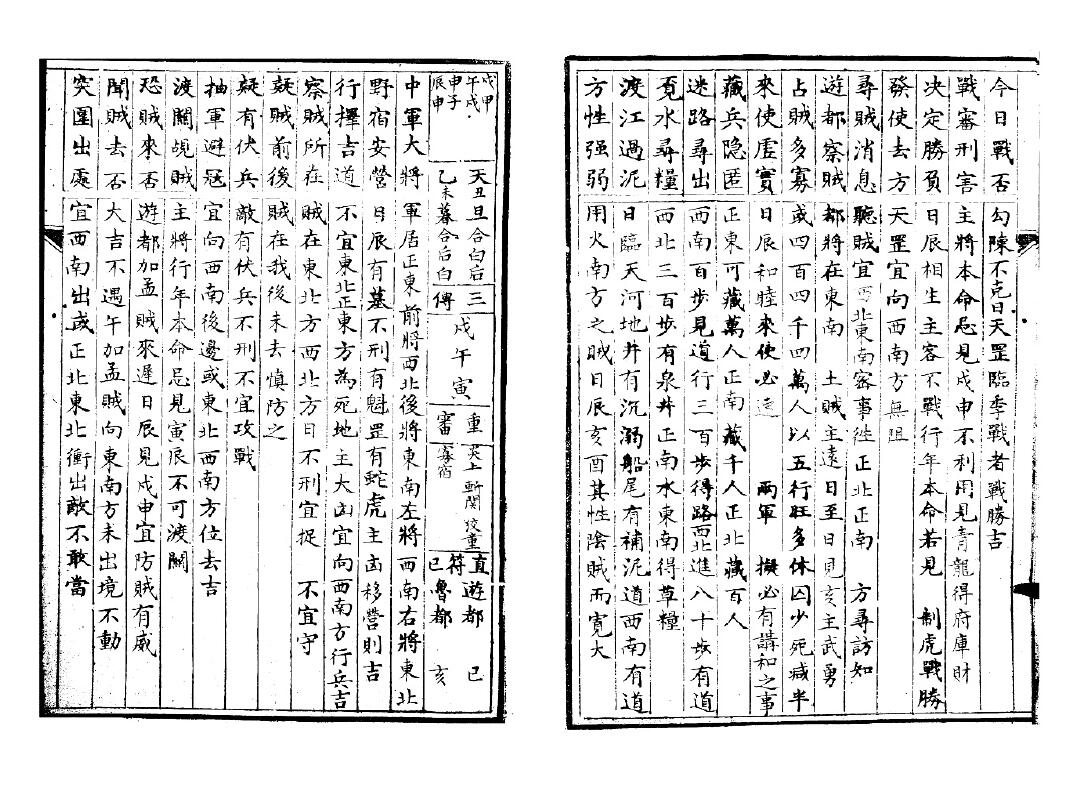 今日戰否 勾陳不克日天罡臨季戰者戰勝吉
戰審刑害 主將本命忌見戌申不利用見青龍得府庫財
決定勝負 日辰相生主客不戰行年本命若見 制虎戰勝
發使去方 天罡宜向西南方無阻
尋賊消息 聽賊宜 北東南審事徃正北正南 方尋訪知
遊都察賊 都將在東南 土賊主遠日至日見亥主武勇
占賊多寡 或四百四千四萬人以五行旺多休囚少死減半
來使虛實 日辰和睦來使必 兩軍 擬必有講和之事
藏兵隐匿 正東可藏萬人正南藏千人正北藏百人
迷路尋出 西南百歩見道行三百歩得路西北進八十歩有道
覔水尋糧 西北三百歩有泉井正南水東南得草糧
渡江過泥 日臨天河地井有沉溺船尾有補泥道西南有道
方性强弱 用火南方之賊日辰亥酉其性陰賊而寛大
戊甲 午戌 申子 辰申
天丑旦合白后
乙未暮合后白
三傳
戌午寅
重審
炎上 斬関 狡童
寡宿
直符 巳
遊都 巳
魯都 亥
中軍大將 軍居正東前將西北後將東南左將西南右將東北
野宿安營 日辰有墓不刑有魁罡有蛇虎主凶移營則吉
行擇吉道 不宜東北正東方為死地主大凶宜向西南方行兵吉
察賊所在 賊在東北方西北方日不刑宜捉 不宜守
疑賊前後 賊在我後未去慎防之
疑有伏兵 敵有伏兵不刑不宜攻戰
抽軍避冦 宜向西南後邊或東北西南方位去吉
渡關覘賊 主將行年本命忌見寅辰不可渡關
恐賊來否 遊都加孟賊來遲日辰見戌申宜防賊有威
聞賊去否 大吉不遇午加孟賊向東南方未出境不動
突圍出處 宜西南出或正北東北衝出敵不敢當